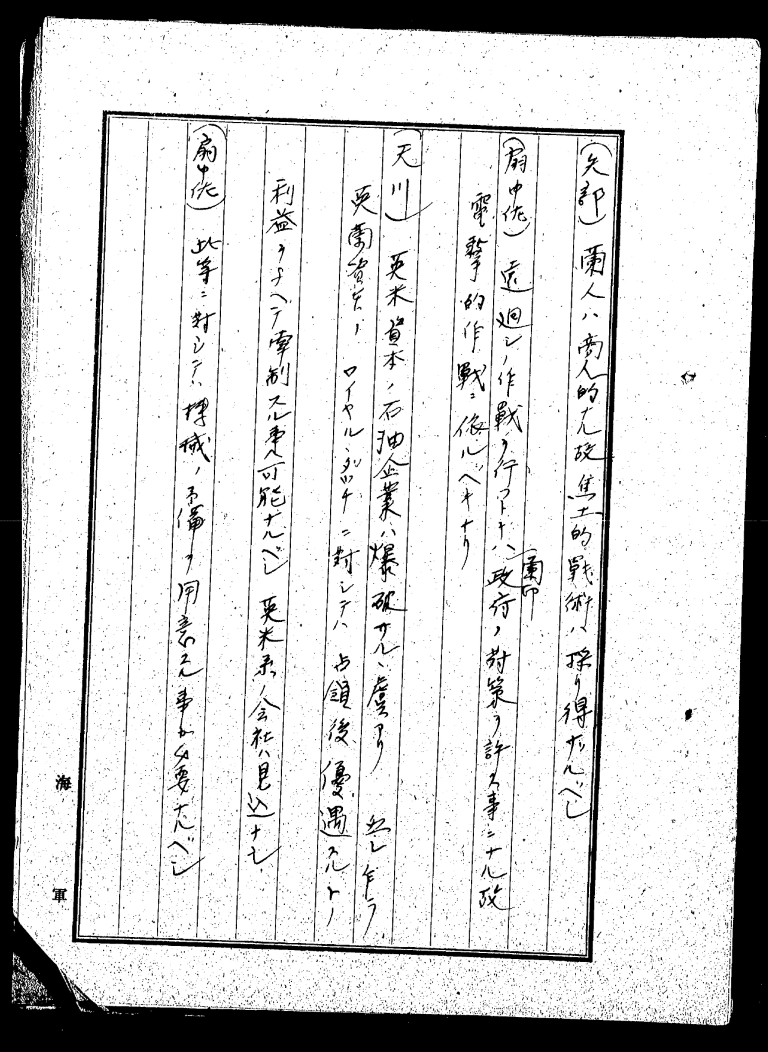 (矢部) 蘭人ハ商人的ナル故焦土的戰術ハ採リ得ザルベシ
(扇中佐) 遠廻シノ作戰ヲ行フトキハ蘭印政府ノ対策ヲ許ス事ニナル故
電撃的作戰ニ依ルベキナリ
(天川) 英米資本ノ石油企業ハ爆破サルヽ虞アリ 然シ乍ラ
英蘭資本ノ ロイヤル、ダッチニ対シテハ占領後優遇スルトノ
利益ヲ与ヘテ牽制スル事ハ可能ナルベシ 英米系ノ会社ハ見込ナシ
(扇中佐) 此等ニ対シテハ機械ノ予備ヲ用意スル事が必要ナルベシ
海軍